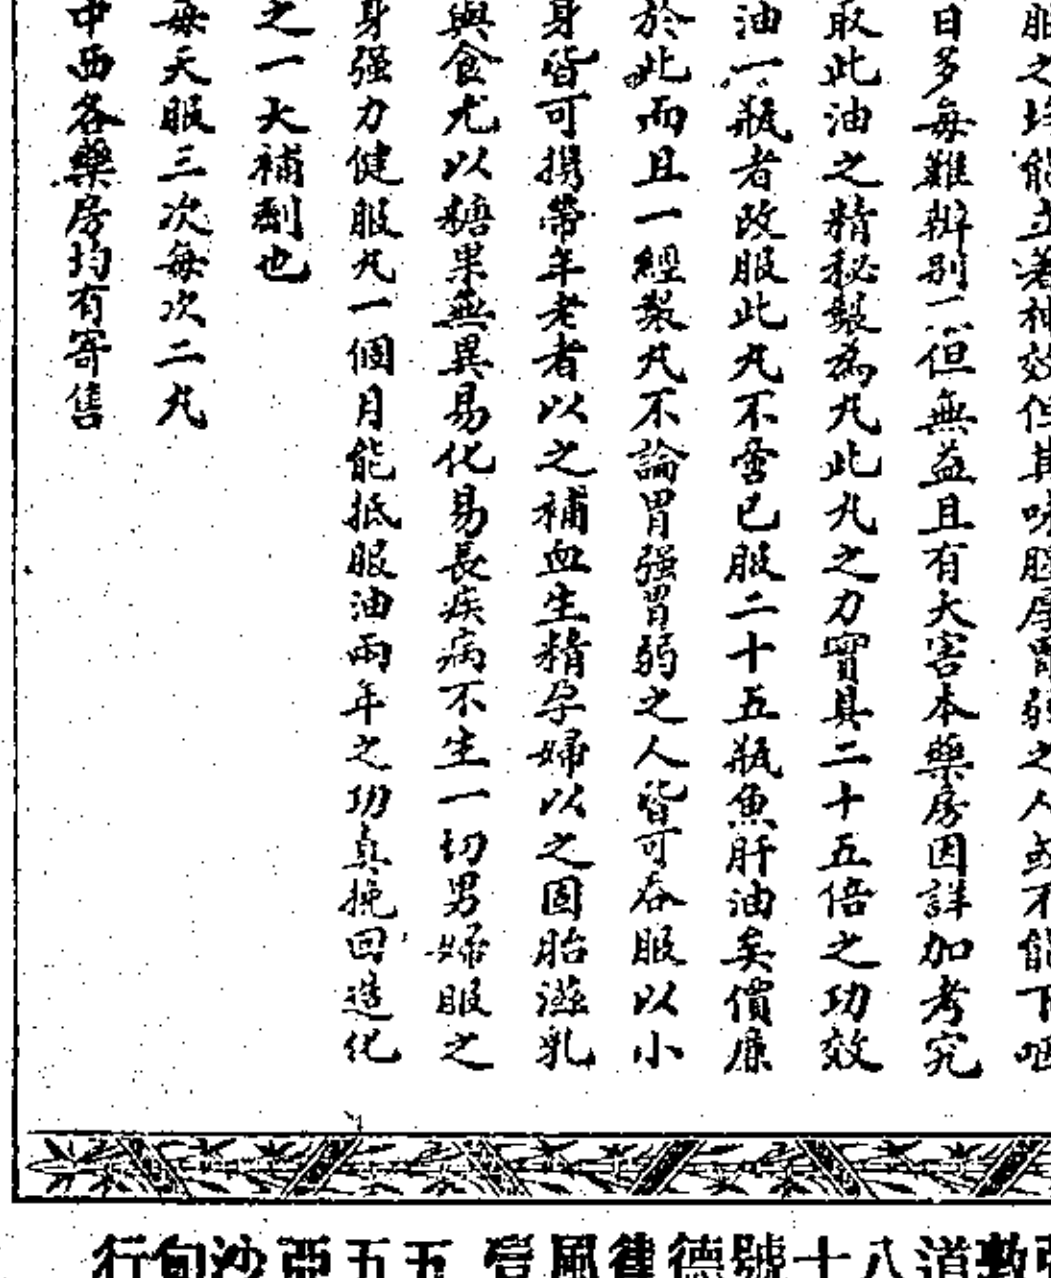 服之均能立著神效但其味腥厚胃弱之人或不能下咽
日多每難辦别不但無益且有大害本藥房因詳加考究
取此油之精秘製為丸此丸之力實具二十五倍之功效
油一瓶者改服此丸不啻已服二十五瓶魚肝油矣價廉
於此而且一經製丸不論胃强胃弱之人皆可吞服以小
身皆可携帶年老者以之補血生精孕婦以之固胎滋乳
與食尤以糖果無異易化易長疾病不生一切男婦服之
身强力健服丸一個月能抵服油兩年之功真挽回造化
之一大補劑也
每天服三次每次二丸
中西各藥房均有寄售
行旬沙亞五五 登風律德號十八道敦